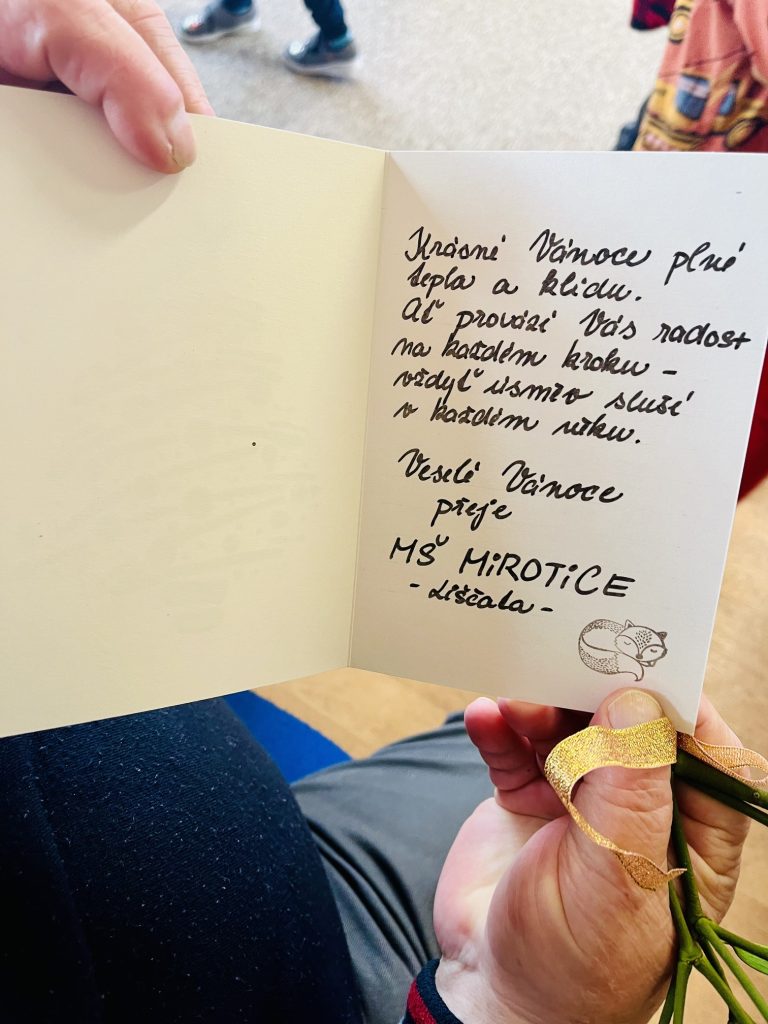 Krásné Vánoce plné
tepla a klidu.
Ať provází Vás radost
na každém kroku –
vždyť úsměv sluší
v každém věku.
Veselé Vánoce
přeje
MŠ MiROTiCE
- Liščata -